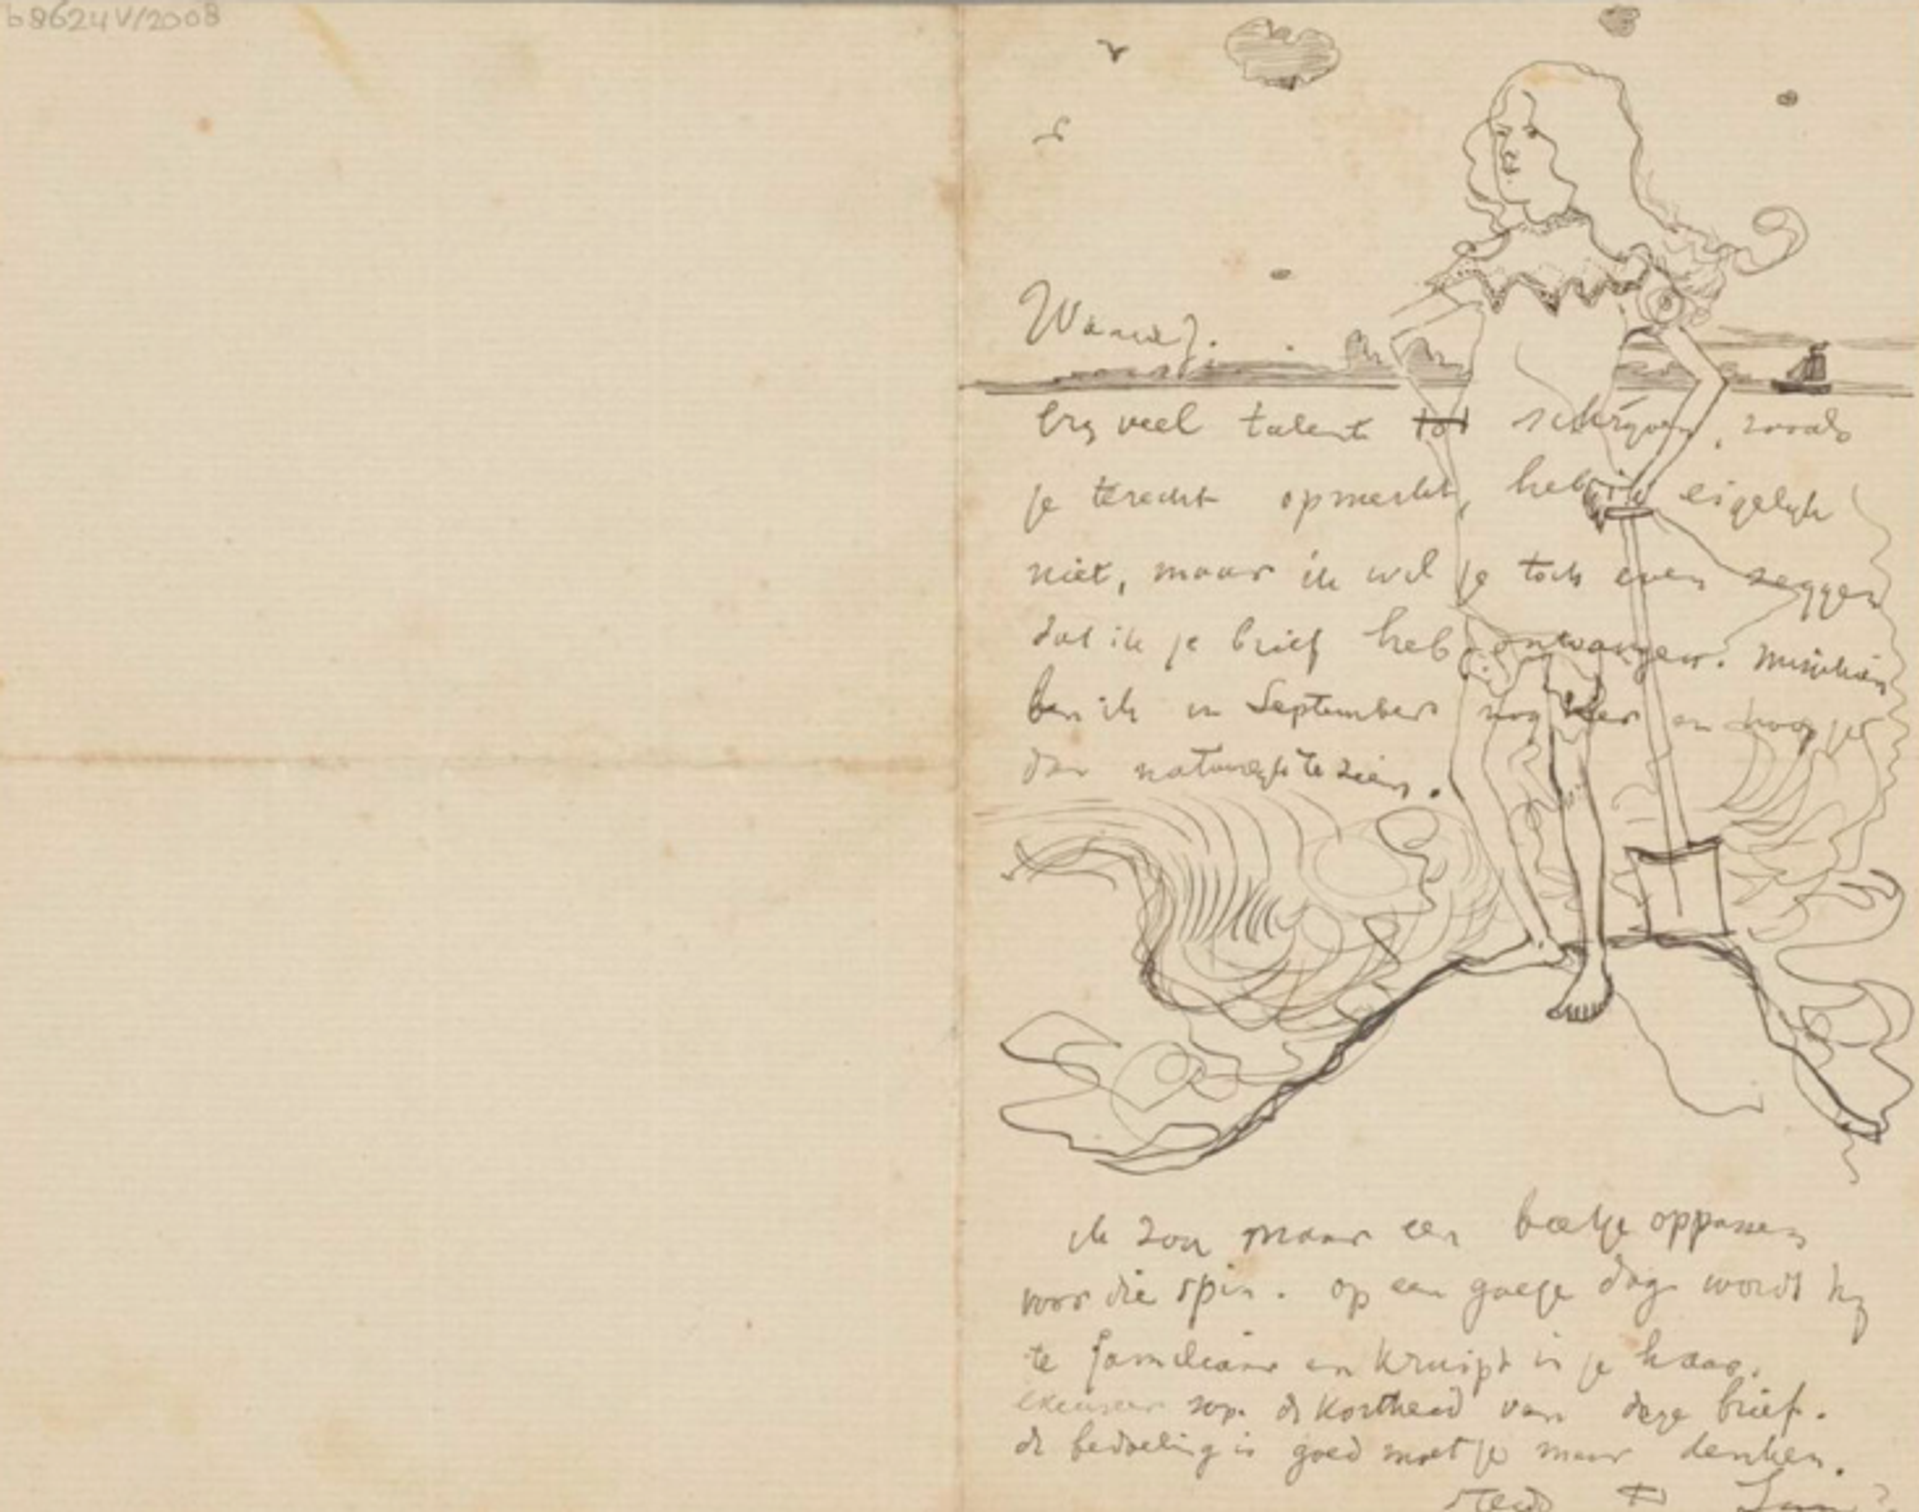 b8624V/2008
Waarde
Erg veel talent tot schrijven, zooals
je terecht opmerkt, heb ik eigelijk
niet, maar ik wil je toch even zeggen
dat ik je brief heb ontvangen. Misschien
ben ik in September nog hier en hoop je
dan natuurlijk te zien.
ik zou maar een beetje oppassen
voor die spin. op een goeje dag wordt hij
te familiaar en kruipt in je haar.
excuseer svp. de kortheid van deze brief.
de bedoeling is goed moet je maar denken.
steeds